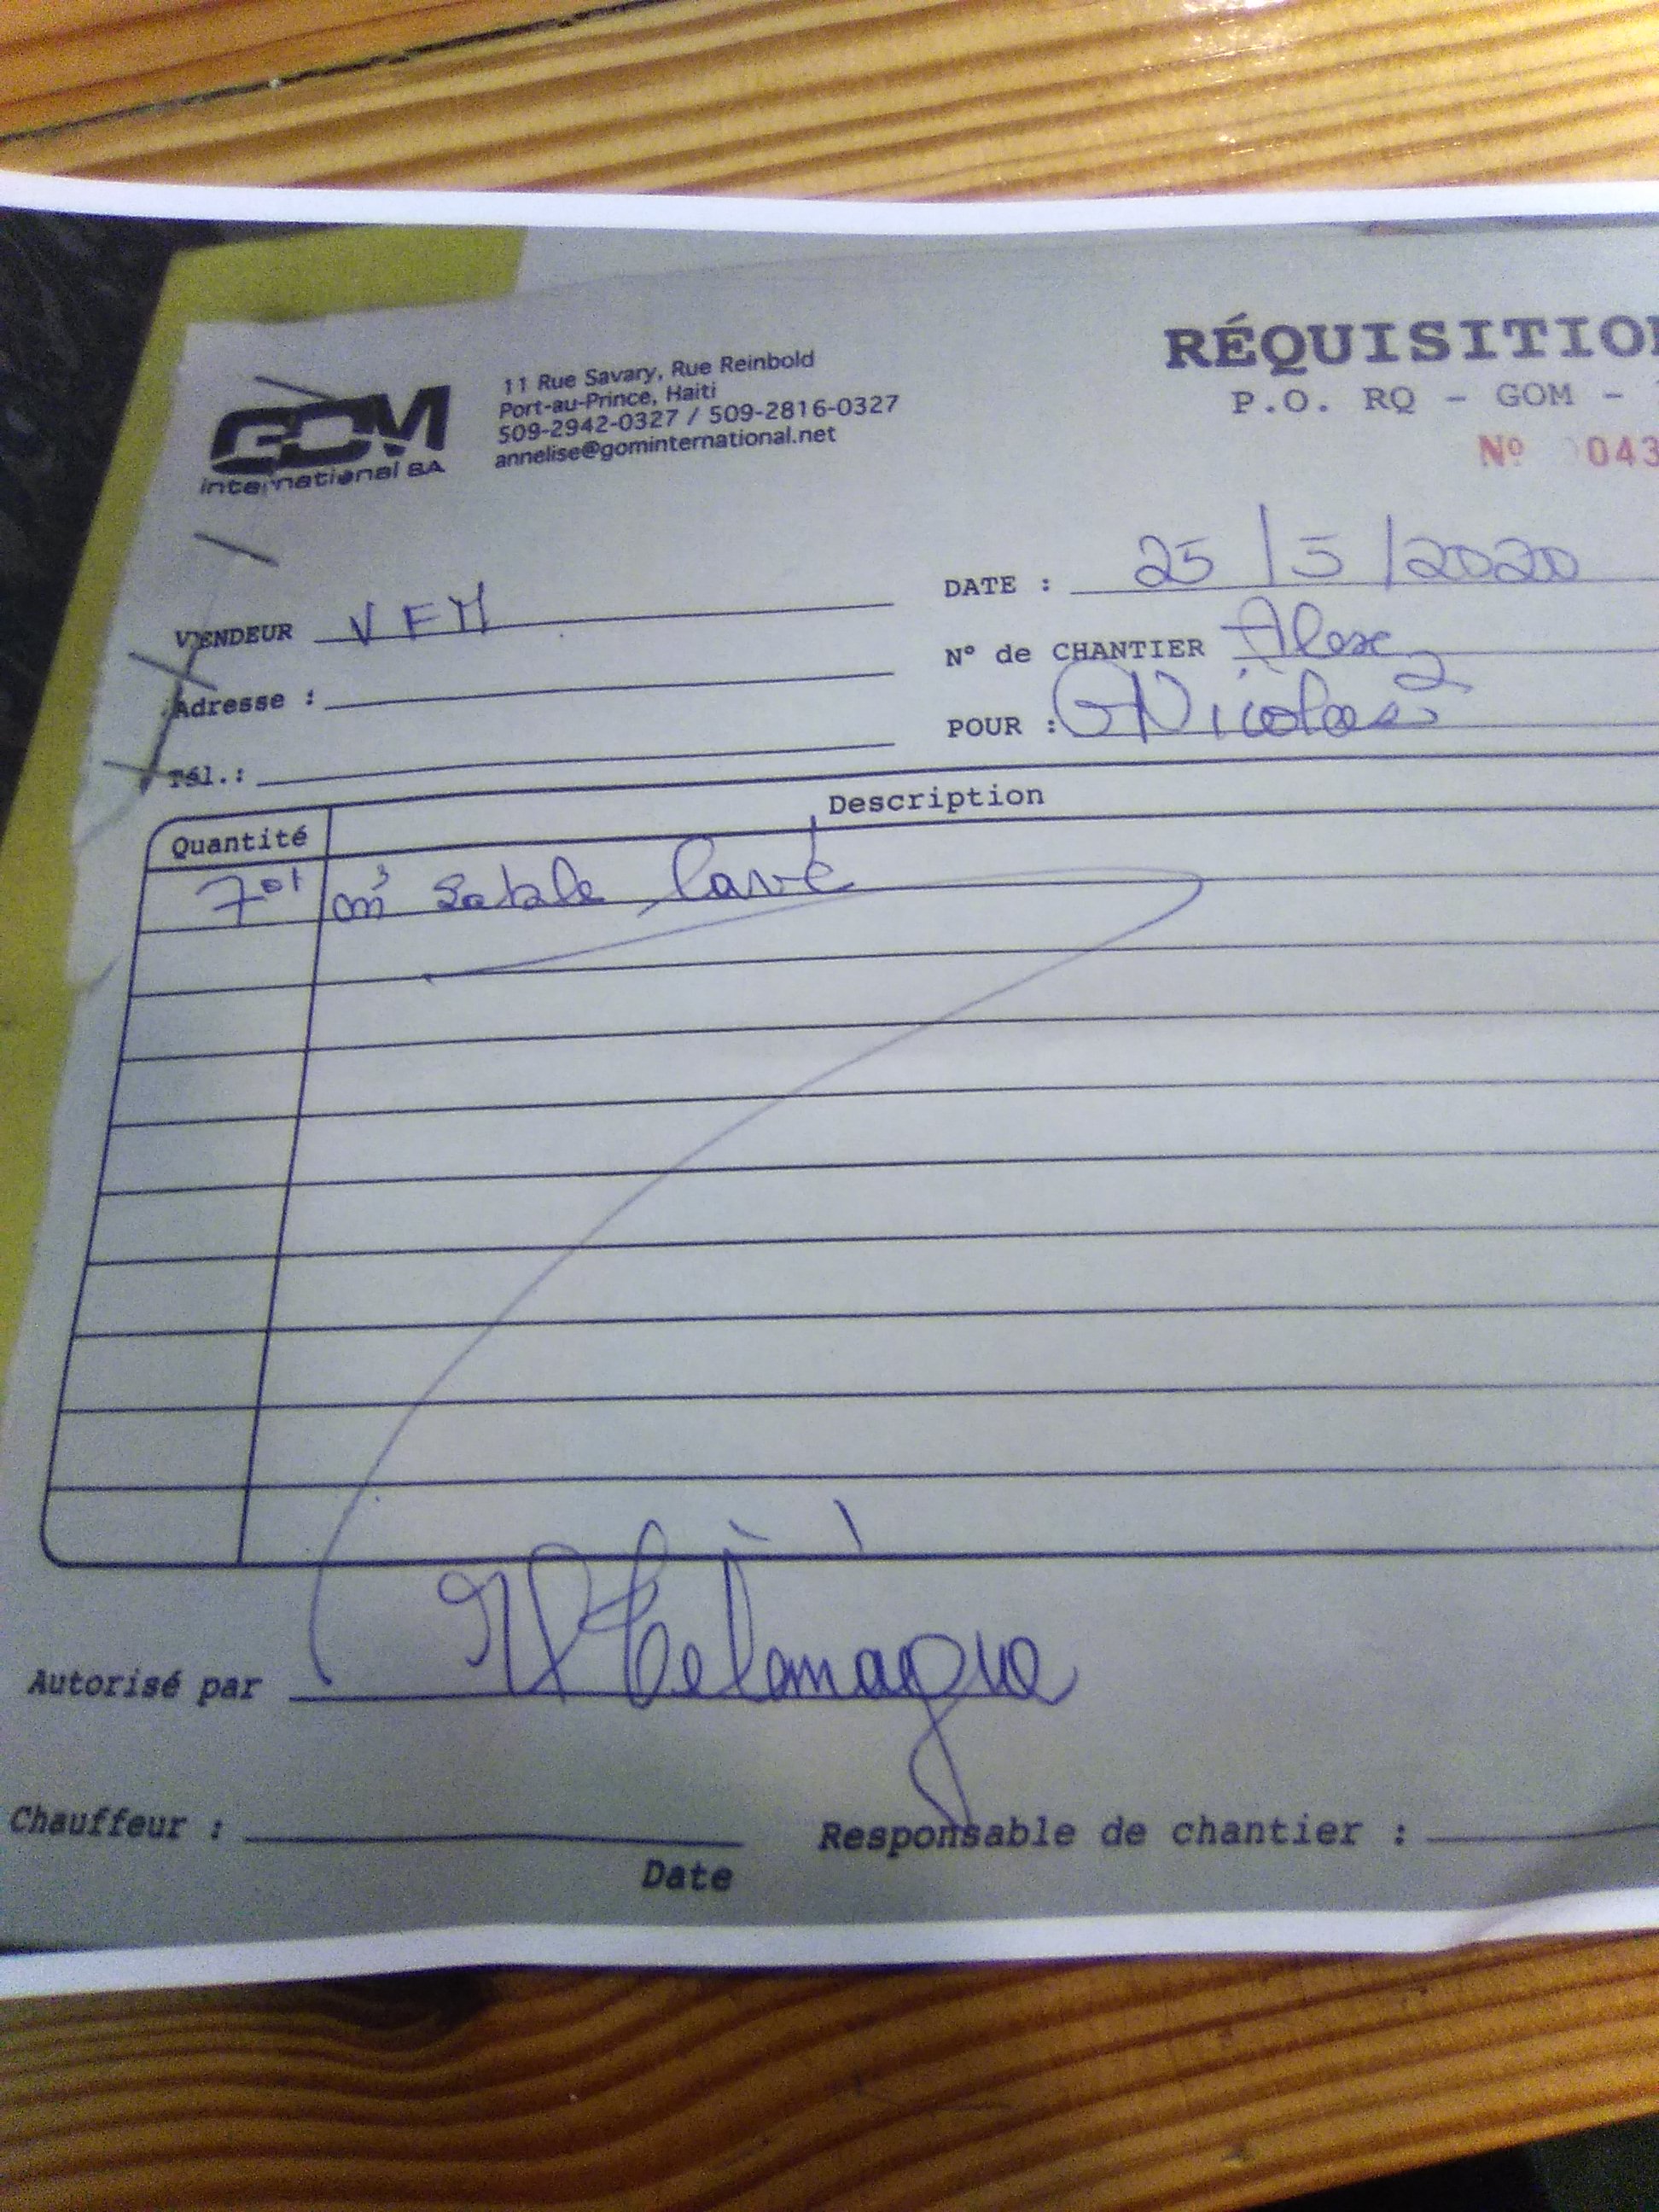 GOM
international SA
11 Rue Savary, Rue Reinbold
Port-au-Prince, Haiti
509-2942-0327 / 509-2816-0327
annelise@gominternational.net
RÉQUISITION
P.O. RQ - GOM -
Nº 043
DATE : 25/5/2020
VENDEUR VFM
N° de CHANTIER Alex
Adresse :
POUR : Nicolas
Tél.:
Quantité Description
7 m³ Sable lavé
Autorisé par Télémaque
Chauffeur : Responsable de chantier :
Date